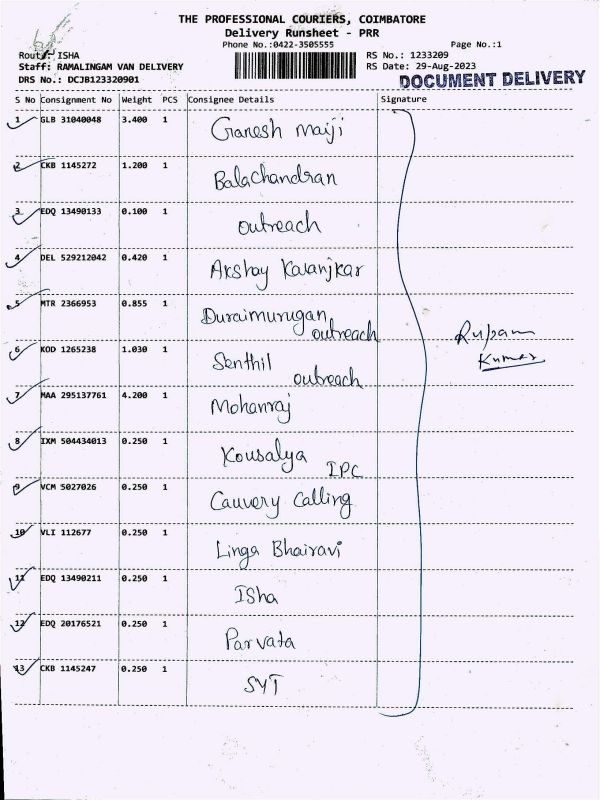 THE PROFESSIONAL COURIERS, COIMBATORE
Delivery Runsheet - PRR
Phone No.:0422-3505555 Page No.:1
Route: ISHA RS No.: 1233209
Staff: RAMALINGAM VAN DELIVERY RS Date: 29-Aug-2023
DRS No.: DCJB123320901 DOCUMENT DELIVERY
S No Consignment No Weight PCS Consignee Details Signature
1 GLB 31040048 3.400 1 Ganesh maiji
2 CKB 1145272 1.200 1 Balachandran
3 EDQ 13490133 0.100 1 outreach
4 DEL 529212042 0.420 1 Akshay Kalanjkar
5 MTR 2366953 0.855 1 Duraimurugan
outreach
Rupam
Kumar
6 KOD 1265238 1.030 1 Senthil
outreach
7 MAA 295137761 4.200 1 Mohanraj
8 IXM 504434013 0.250 1 Kousalya
IPC
9 VCM 5027026 0.250 1 Cauvery Calling
10 VLI 112677 0.250 1 Linga Bhairavi
11 EDQ 13490211 0.250 1 ISha
12 EDQ 20176521 0.250 1 Parvata
13 CKB 1145247 0.250 1 SYT